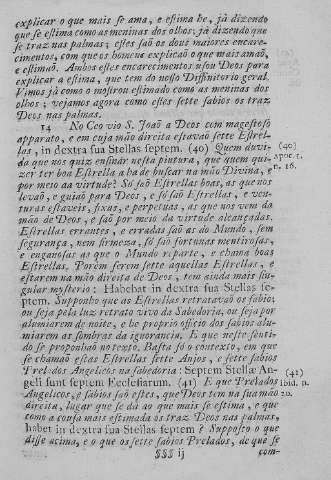 explicar o que mais se ama, e estima he, já dizendo
que se estima como as meninas dos olhos; já dizendo que
se traz nas palmas; estes saõ os dous maiores encare-
cimentos, com que os homens explicaõ o que mais amaõ,
e estimaõ. Ambos estes encarecimentos usou Deos para
explicar a estima, que tem do nosso Diffinitorio geral.
Vimos já como o mostrou estimado como as meninas dos
olhos; vejamos agora como estes sette sabios os traz
Deos nas palmas.
14 No Ceo vio S. Joaõ a Deos com magestoso
apparato, e em cuja mão direita estavaõ sette Estrel-
las, in dextra sua Stellas septem. (40) Quem duvi-
(40)
da que nos quiz ensinar nesta pintura, que quem qui-
Apoc. 1.
zer ter boa Estrella a ha de buscar na mão Divina, e
n. 16.
por meio da virtude? Só saõ Estrellas boas, as que nos
levaõ, e guiaõ para Deos, e só saõ Estrellas, e ven-
turas estaveis, fixas, e perpetuas, as que nos vem da
mão de Deos, e saõ por meio da virtude alcançadas.
Estrellas errantes, e erradas saõ as do Mundo, sem
segurança, nem firmeza, só saõ fortunas mentirosas,
e enganosas as que o Mundo reparte, e chama boas
Estrellas. Porèm serem sette aquellas Estrellas, e
estarem na mão direita de Deos, tem ainda mais sin-
gular mysterio: Habebat in dextra sua Stellas se-
ptem. Supponho que as Estrellas retratavaõ os sabios,
ou seja pela luz retrato vivo da Sabedoria, ou seja por
alumiarem de noite, e he proprio officio dos sabios alu-
miarem as sombras da ignorancia. E que neste senti-
do se proponhaõ no texto. Basta só o contexto, em que
se chamaõ estas Estrellas sette Anjos, e sette sabios
Prelados Angelicos na sabedoria: Septem Stellæ An-
geli sunt septem Ecclesiarum. (41) E que Prelados
(41)
Angelicos, e sabios saõ estes, que Deos tem na sua maõ
Ibid. n.
direita, lugar que se dá ao que mais se estima, e que
20.
como a cousa mais estimada os traz Deos nas palmas,
habet in dextra sua Stellas septem? Supposto o que
disse acima, e o que os sette sabios Prelados, de que se
§§§ ij
com-